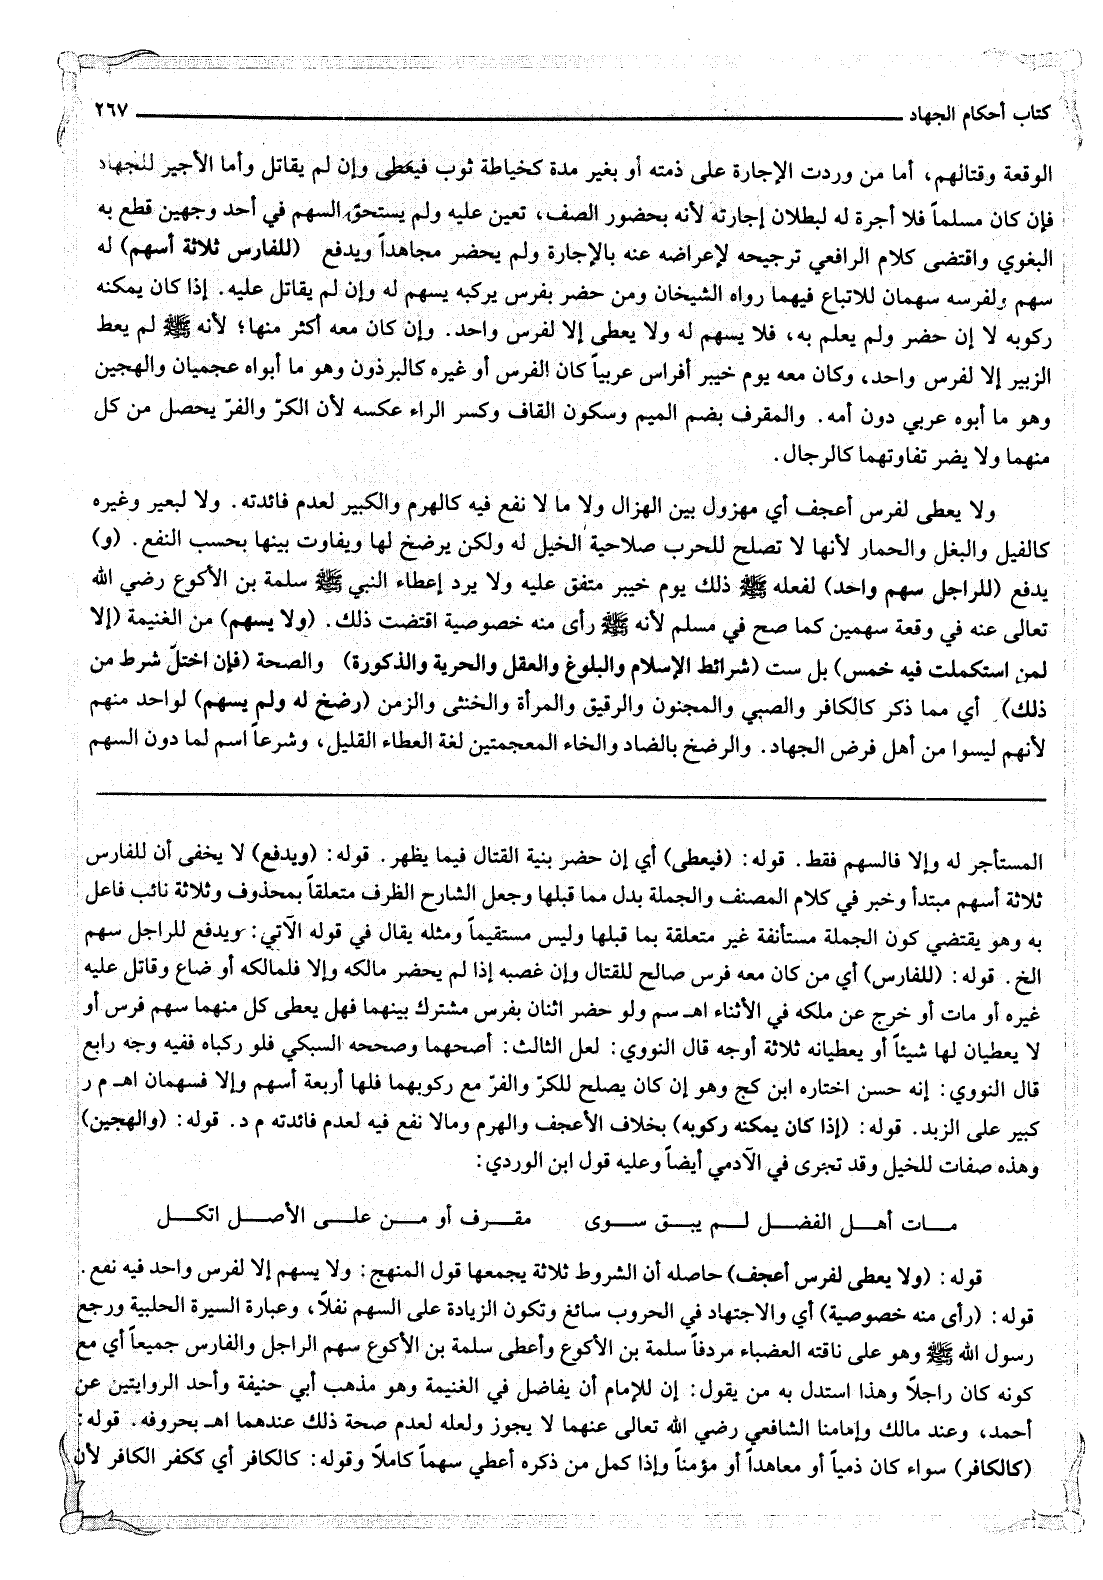 كتاب أحكام الجهاد ٢٦٧
الوقعة وقتالهم، أما من وردت الإجارة على ذمته أو بغير مدة كخياطة ثوب فيعطى وإن لم يقاتل وأما الأجير للجهاد
فإن كان مسلماً فلا أجرة له لبطلان إجارته لأنه بحضور الصف، تعين عليه ولم يستحق السهم في أحد وجهين قطع به
البغوي واقتضى كلام الرافعي ترجيحه لإعراضه عنه بالإجارة ولم يحضر مجاهداً ويدفع (للفارس ثلاثة أسهم) له
سهم ولفرسه سهمان للاتباع فيهما رواه الشيخان ومن حضر بفرس يركبه يسهم له وإن لم يقاتل عليه. إذا كان يمكنه
ركوبه لا إن حضر ولم يعلم به، فلا يسهم له ولا يعطى إلا لفرس واحد. وإن كان معه أكثر منها؛ لأنه ﷺ لم يعط
الزبير إلا لفرس واحد، وكان معه يوم خيبر أفراس عربياً كان الفرس أو غيره كالبرذون وهو ما أبواه عجميان والهجين
وهو ما أبوه عربي دون أمه. والمقرف بضم الميم وسكون القاف وكسر الراء عكسه لأن الكرّ والفرّ يحصل من كل
منهما ولا يضر تفاوتهما كالرجال.
ولا يعطى لفرس أعجف أي مهزول بين الهزال ولا ما لا نفع فيه كالهرم والكبير لعدم فائدته. ولا لبعير وغيره
كالفيل والبغل والحمار لأنها لا تصلح للحرب صلاحية الخيل له ولكن يرضخ لها ويفاوت بينها بحسب النفع. (و)
يدفع (للراجل سهم واحد) لفعله ﷺ ذلك يوم خيبر متفق عليه ولا يرد إعطاء النبي ﷺ سلمة بن الأكوع رضي الله
تعالى عنه في وقعة سهمين كما صح في مسلم لأنه ﷺ رأى منه خصوصية اقتضت ذلك. (ولا يسهم) من الغنيمة (إلا
لمن استكملت فيه خمس) بل ست (شرائط الإسلام والبلوغ والعقل والحرية والذكورة) والصحة (فإن اختلّ شرط من
ذلك) أي مما ذكر كالكافر والصبي والمجنون والرقيق والمرأة والخنثى والزمن (رضخ له ولم يسهم) لواحد منهم
لأنهم ليسوا من أهل فرض الجهاد. والرضخ بالضاد والخاء المعجمتين لغة العطاء القليل، وشرعاً اسم لما دون السهم
المستأجر له وإلا فالسهم فقط. قوله: (فيعطى) أي إن حضر بنية القتال فيما يظهر. قوله: (ويدفع) لا يخفى أن للفارس
ثلاثة أسهم مبتدأ وخبر في كلام المصنف والجملة بدل مما قبلها وجعل الشارح الظرف متعلقاً بمحذوف وثلاثة نائب فاعل
به وهو يقتضي كون الجملة مستأنفة غير متعلقة بما قبلها وليس مستقيماً ومثله يقال في قوله الآتي: ويدفع للراجل سهم
الخ. قوله: (للفارس) أي من كان معه فرس صالح للقتال وإن غصبه إذا لم يحضر مالكه وإلا فلمالكه أو ضاع وقاتل عليه
غيره أو مات أو خرج عن ملكه في الأثناء اهـ سم ولو حضر اثنان بفرس مشترك بينهما فهل يعطى كل منهما سهم فرس أو
لا يعطيان لها شيئاً أو يعطيانه ثلاثة أوجه قال النووي: لعل الثالث: أصحهما وصححه السبكي فلو ركباه ففيه وجه رابع
قال النووي: إنه حسن اختاره ابن كج وهو إن كان يصلح للكرّ والفرّ مع ركوبهما فلها أربعة أسهم وإلا فسهمان اهـ م ر
كبير على الزبد. قوله: (إذا كان يمكنه ركوبه) بخلاف الأعجف والهرم ومالا نفع فيه لعدم فائدته م د. قوله: (والهجين)
وهذه صفات للخيل وقد تجرى في الآدمي أيضاً وعليه قول ابن الوردي:
مـات أهـل الفضـل لـم يبـق سـوى مقـرف أو مـن علـى الأصـل اتكـل
قوله: (ولا يعطى لفرس أعجف) حاصله أن الشروط ثلاثة يجمعها قول المنهج: ولا يسهم إلا لفرس واحد فيه نفع.
قوله: (رأى منه خصوصية) أي والاجتهاد في الحروب سائغ وتكون الزيادة على السهم نفلاً، وعبارة السيرة الحلبية ورجع
رسول الله ﷺ وهو على ناقته العضباء مردفاً سلمة بن الأكوع وأعطى سلمة بن الأكوع سهم الراجل والفارس جميعاً أي مع
كونه كان راجلاً وهذا استدل به من يقول: إن للإمام أن يفاضل في الغنيمة وهو مذهب أبي حنيفة وأحد الروايتين عن
أحمد، وعند مالك وإمامنا الشافعي رضي الله تعالى عنهما لا يجوز ولعله لعدم صحة ذلك عندهما اهـ بحروفه. قوله:
(كالكافر) سواء كان ذمياً أو معاهداً أو مؤمناً وإذا كمل من ذكره أعطي سهماً كاملاً وقوله: كالكافر أي ككفر الكافر لأن